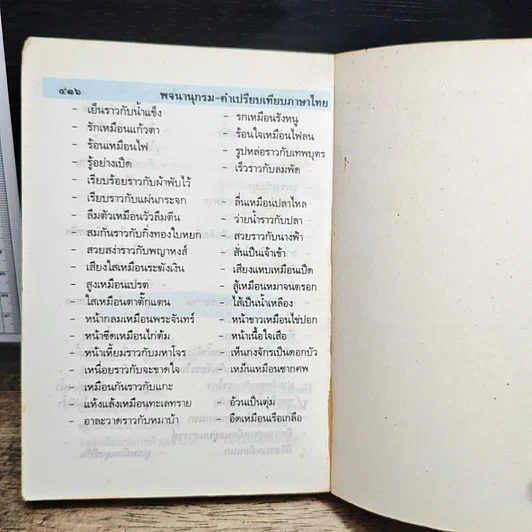 ๔๑๖
พจนานุกรม-คำเปรียบเทียบภาษาไทย
- เย็นราวกับน้ำแข็ง
- รักเหมือนแก้วตา
- ร้อนเหมือนไฟ
- รู้อย่างเป็ด
- เรียบร้อยราวกับผ้าพับไว้
- เรียบราวกับแผ่นกระจก
- ลืมตัวเหมือนวัวลืมตีน
- สมกันราวกับกิ่งทองใบหยก
- สวยสง่าราวกับพญาหงส์
- เสียงใสเหมือนระฆังเงิน
- สูงเหมือนเปรต
- ใสเหมือนตาตั๊กแตน
- หน้ากลมเหมือนพระจันทร์
- หน้าซีดเหมือนไก่ต้ม
- หน้าเหี้ยมราวกับมหาโจร
- เหนื่อยราวกับจะขาดใจ
- เหมือนกันราวกับแกะ
- แห้งแล้งเหมือนทะเลทราย
- อาละวาดราวกับหมาบ้า
- รกเหมือนรังหนู
- ร้อนใจเหมือนไฟลน
- รูปหล่อราวกับเทพบุตร
- เร็วราวกับลมพัด
- ลื่นเหมือนปลาไหล
- ว่ายน้ำราวกับปลา
- สวยราวกับนางฟ้า
- สั่นเป็นเจ้าเข้า
- เสียงแหบเหมือนเป็ด
- สู้เหมือนหมาจนตรอก
- ไส้เป็นน้ำเหลือง
- หน้าขาวเหมือนไข่ปอก
- หน้าเนื้อใจเสือ
- เห็นกงจักรเป็นดอกบัว
- เหม็นเหมือนซากศพ
- อ้วนเป็นตุ่ม
- อืดเหมือนเรือเกลือ